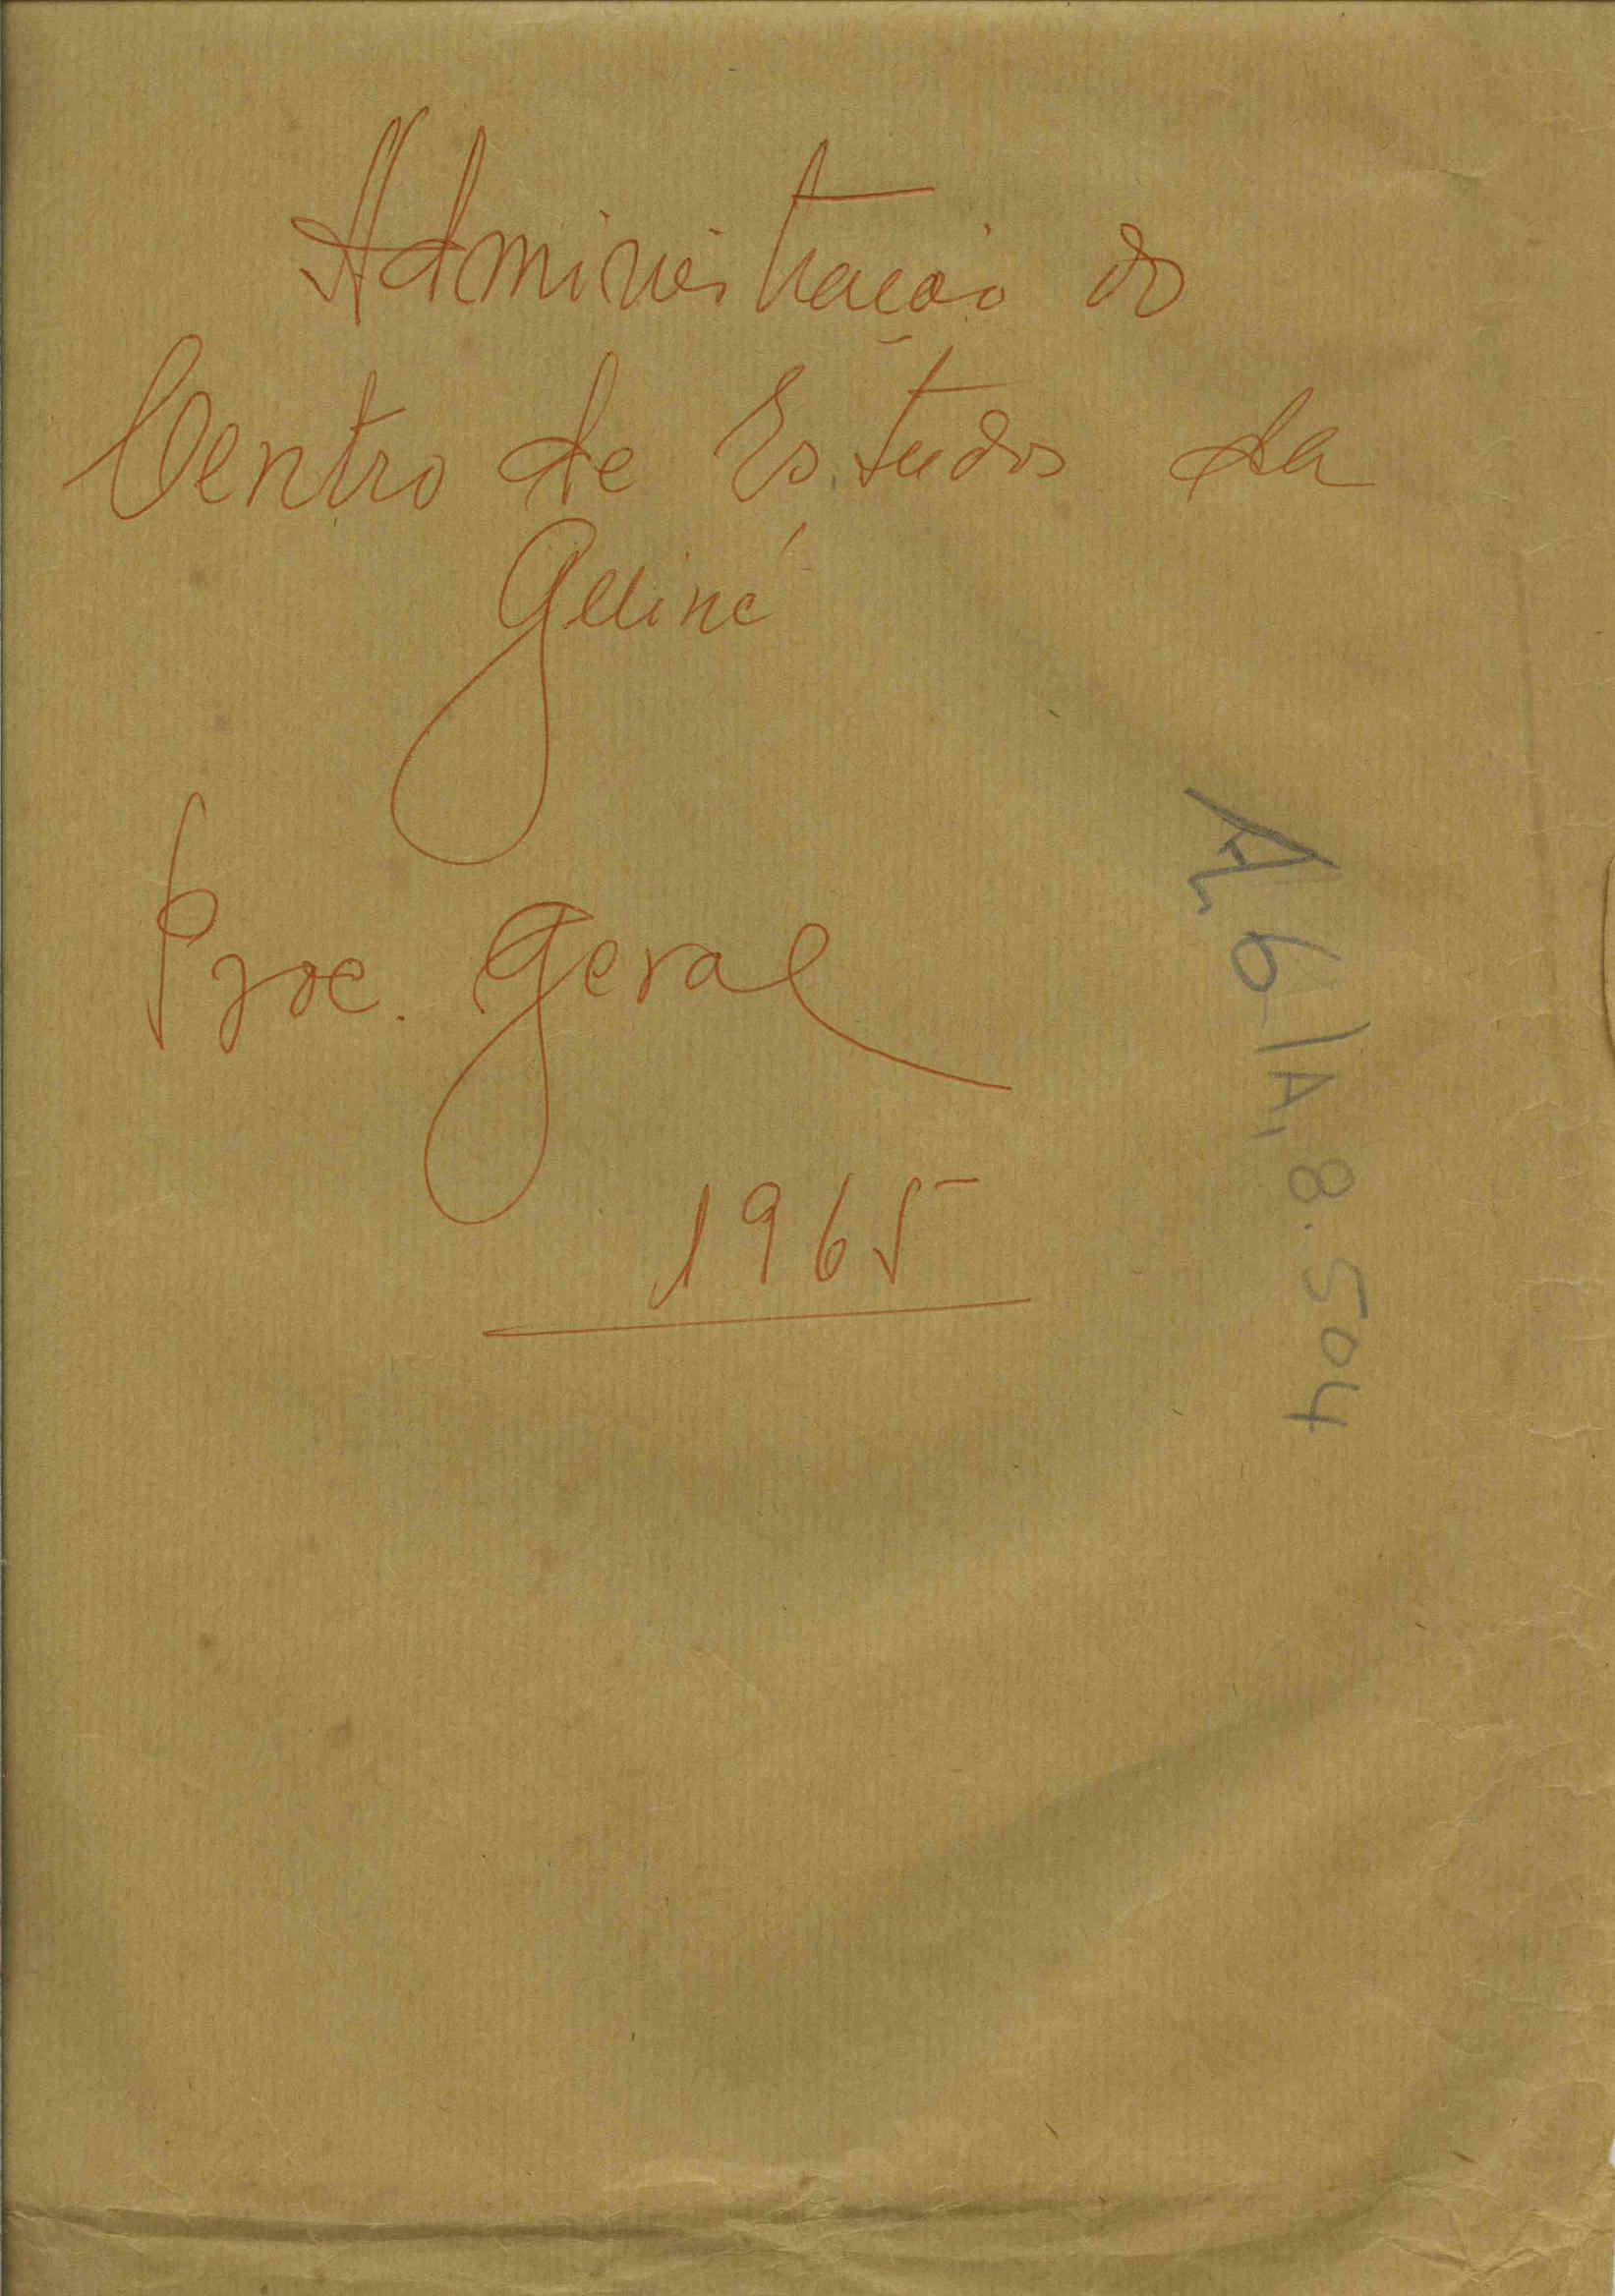 Administração do
Centro de Estudos da
Guiné
Proc. Geral
1965
A6/A,8.504